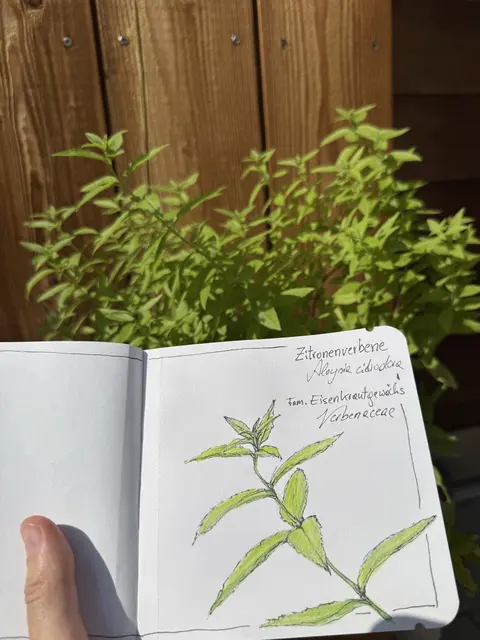 Zitronenverbene
Aloysia citriodora
Fam. Eisenkrautgewächs
Verbenaceae